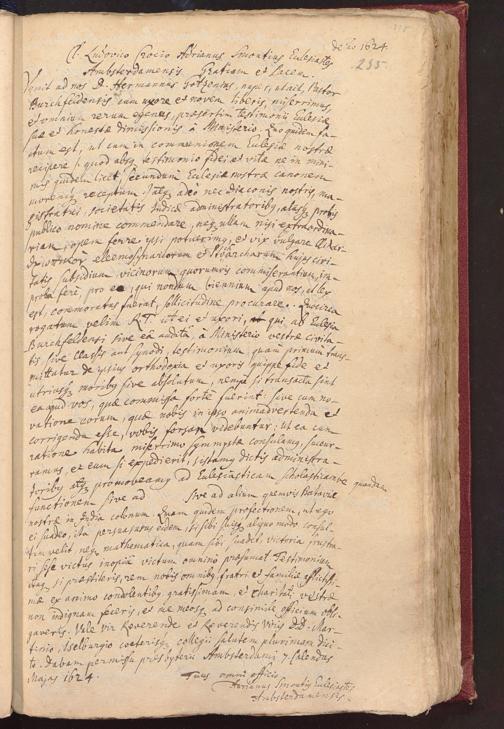 de Ao 1624.
235
Cl. Ludovico Crocio Adrianus Smoutius Ecclesiastes
Amsterdamensis. Gratiam et Pacem.
Venit ad nos D. Hermannus nuper, ut ait, Pastor
Burchfeldensis cum uxore et novem liberis, miserrimus,
et omnium rerum egenus, praesertim testimonii Ecclesiae
suae et honestae dimissionis à Ministerio. Quo quidem fa-
ctum est, ut eum in communionem Ecclesiae nostrae
recipere, quod absq testimonio fidei et vitae ne in mini-
mis quidem licet, secundum Ecclesiae nostrae canonem
receptum. Itaq adeò nec diaconis nostris, ma-
gistratui, societatis Indicae administratoribq, aliisq probis
publico nomine commendare, neq ullam nisi extraordina-
riam opem ferre ipsi potuerimq, et vix vulgare
eleemosynariorum et hujus civi-
tatis subsidium vicinorum quorumvis commiseratium, im-
probè ferè, pro eo, qui nondum biennium apud nos, ut lex
est, commoratus fuerat, sollicitudine procurare. Quocirca
rogatum velim R.T. ut ei et uxori, qui ab Ecclesia
Burchfeldensi sive eâ auditâ, à Ministerio vestrae civita-
tis sive Classis aut synodi, testimonium quam primum trans-
mittatur de ipsius orthodoxia et uxoris quippe fide et
utriusq moribq sive absolutum, nempe si transacta sint
ea apud vos, quae commissa fortè fuerint: sive cum no-
tatione eorum, quae nobis in ipso animadvertenda et
corrigenda esse, vobis forsan videbuntur: ut ea cum
ratione habita miserrimo symmystae consulamq, succur-
ramus, et eum si expedierit, sistamq dictis administra-
toribq atq promoveamq ad Ecclesiasticam Scholasticamve quandam
functionem sive ad sive ad alium quemvis Bataviae
nostrae in India colonum. Quam quidem profectionem, ut ego
ei suadeo, ita persuasus eidem, si sibi suisq aliquo modo consul-
tum velit neq mathematica, quam sibi suadet, victoria frustra-
ri sese victus inopiâ victum omnino praesumat. Testimonium
si praestiteris, rem nobis omnibq, fratri et familiae afflictissi-
mae ex animo condolentibq gratissimam, et charitate vestrâ
non indignam feceris, et me meosq ad consimile officium obli-
gaveris. Vale vir Reverende et Reverendis Viris D.D. Mar-
tinio, Isselburgio coeterisq collegis salutem plurimam dici-
to. Dabam permissu presbyterii Amsterdami 7. Calendas
Majas 1624.
Tuus omni officio
Adrianus Smoutius Ecclesiastes
Amsterdamensis.